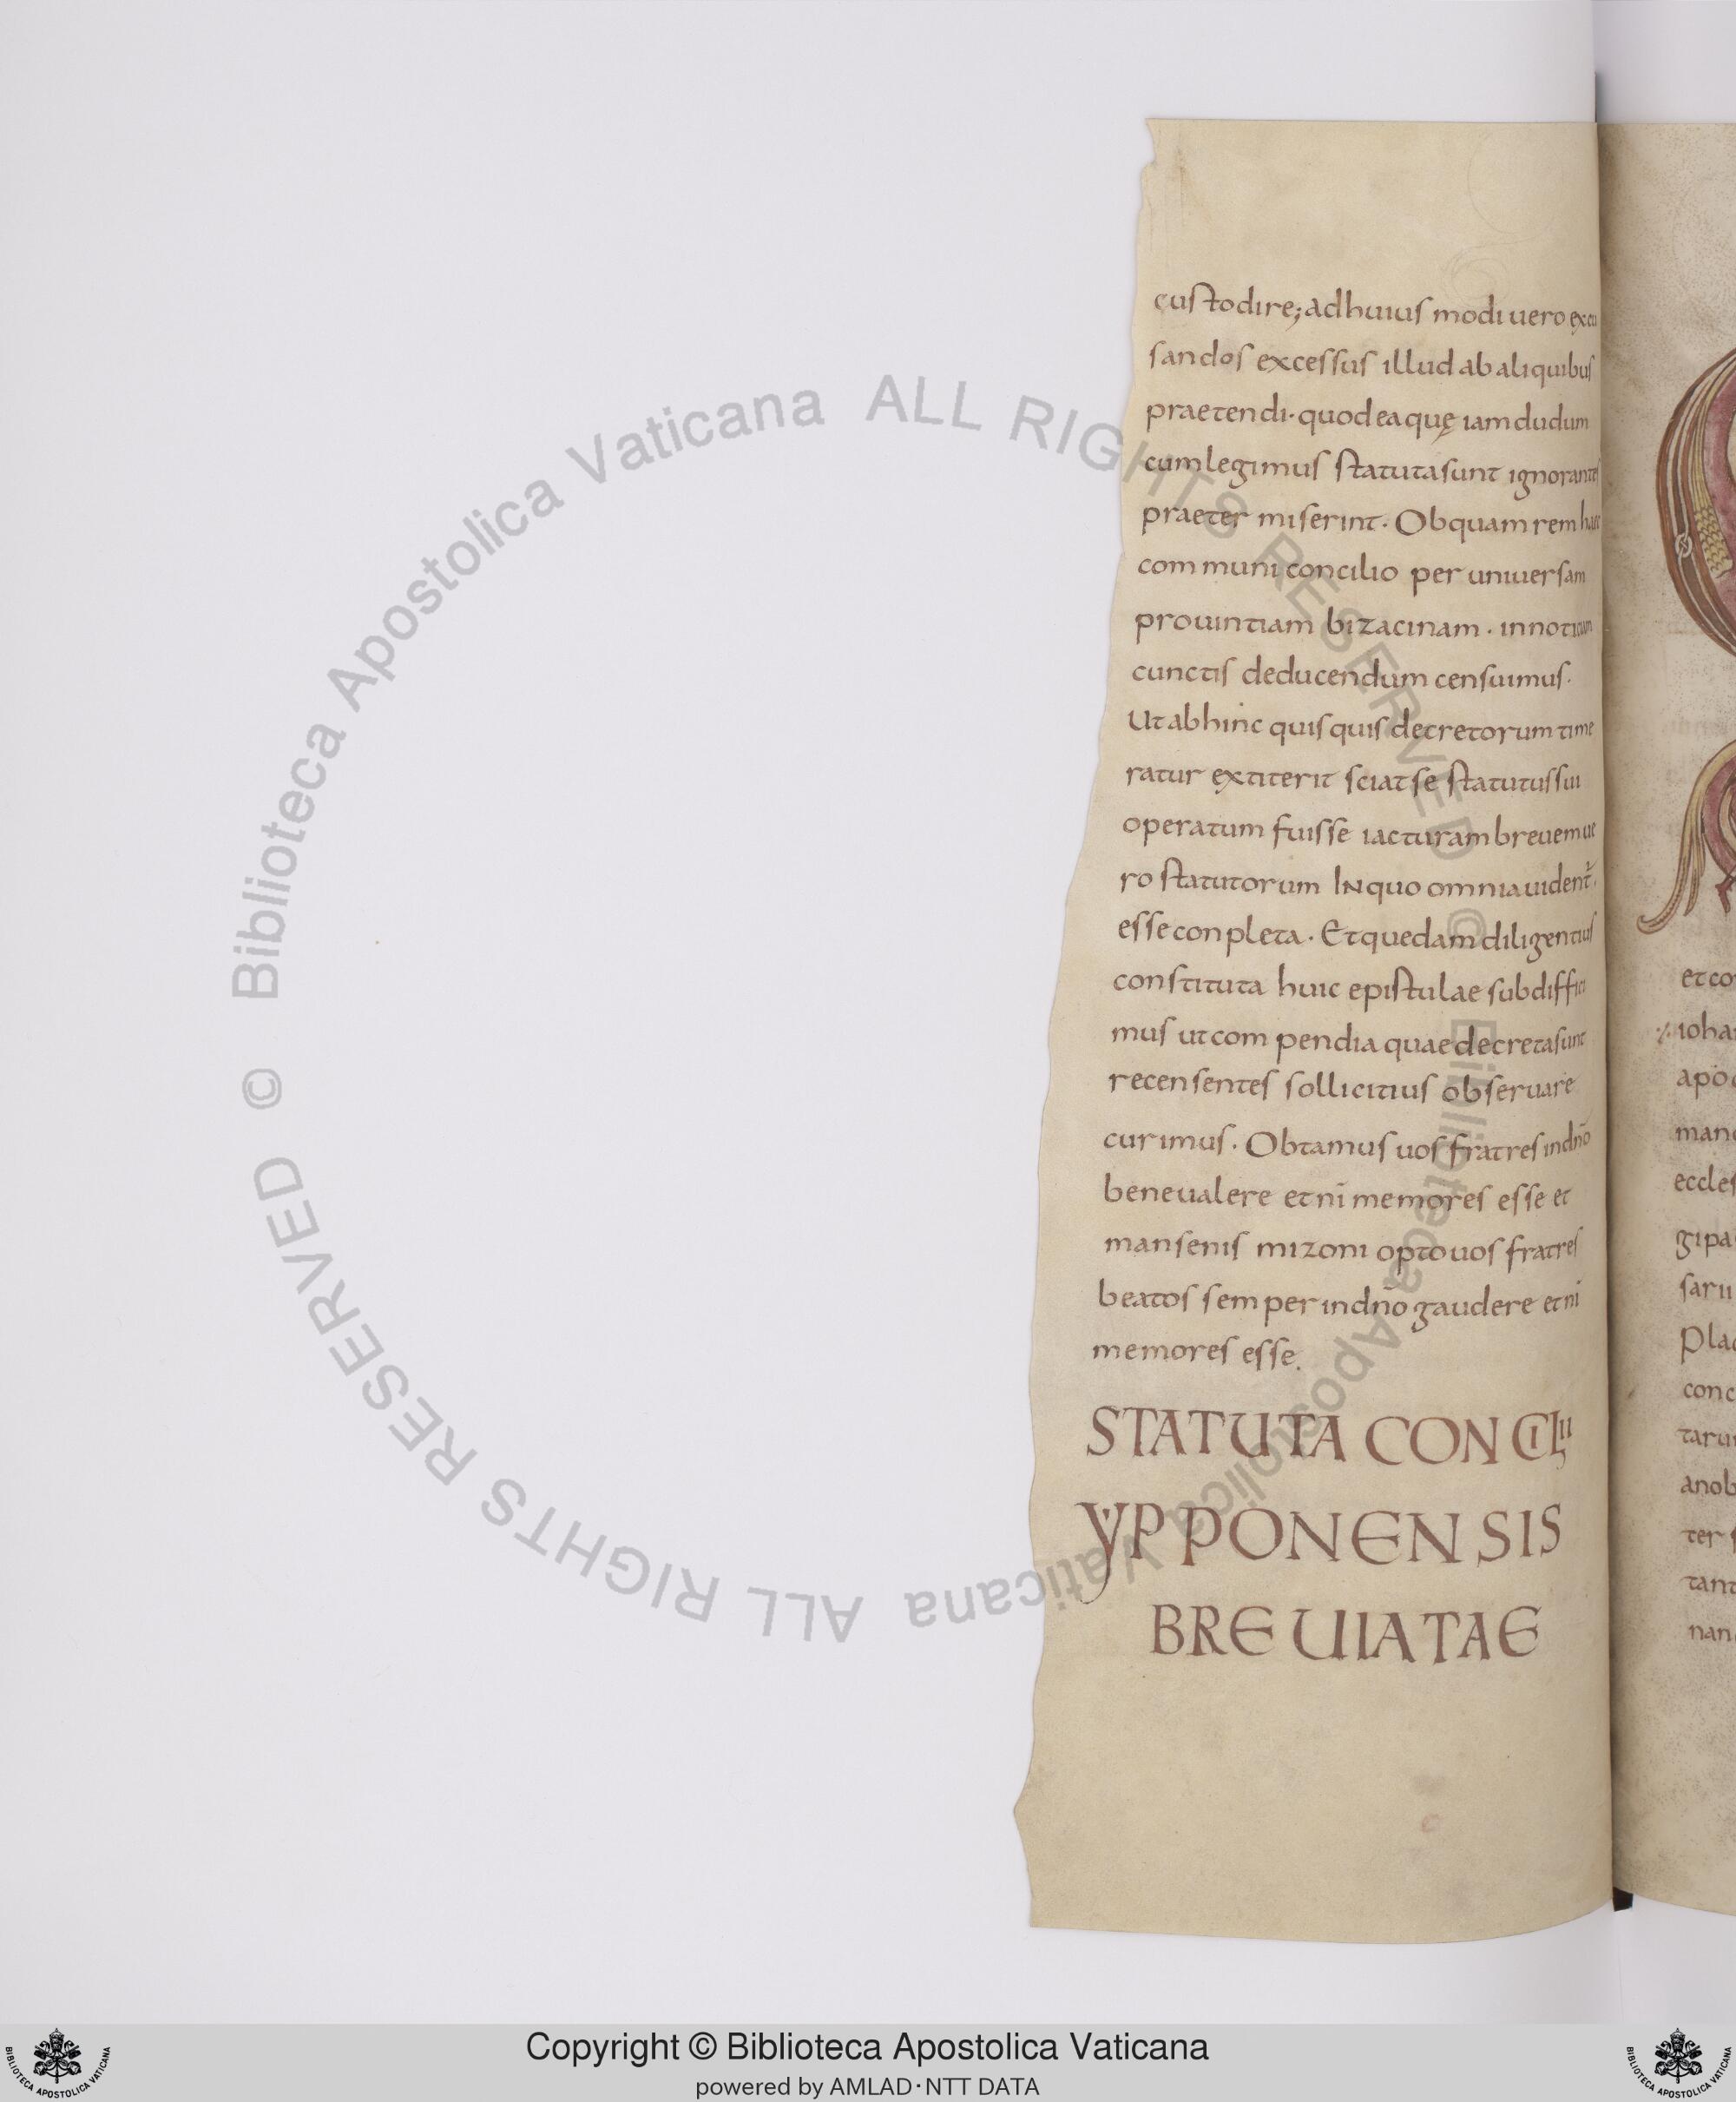 custodire; ad huius modi uero excu
sandos excessus illud ab aliquibus
praetendi · quod ea quę iam dudum
cum legimus statuta sunt ignorantes
praeter miserint · Ob quam rem haec
communi concilio per uniuersam
prouintiam bizacinam · in noticiam
cunctis deducendum censuimus ·
Ut abhinc quisquis decretorum time
ratur extiterit sciat se statutus sui
operatum fuisse iacturam breuem ue
ro statutorum In quo omnia uident̄ ·
esse conpleta · Et quedam diligentius
constituta huic epistulae subdiffici
mus ut compendia quae decreta sunt
recensentes sollicitius obseruare
curimus · Obtamus uos fratres in dn̄o
bene ualere et nī memores esse et
mansenis mizoni opto uos fratres
beatos semper in dn̄o gaudere et nī
memores esse.
STATUTA CONCILII
YPPONENSIS
BREUIATAE
et co
ioha
apoc
man
eccles
gi pa
sarii
Plac
conc
tarum
anob
ter s
tant
nan
Biblioteca Apostolica Vaticana ALL RIGHTS RESERVED ©
Biblioteca Apostolica Vaticana ALL RIGHTS RESERVED ©
Copyright © Biblioteca Apostolica Vaticana
powered by AMLAD·NTT DATA
BIBLIOTECA APOSTOLICA VATICANA
BIBLIOTECA APOSTOLICA VATICANA